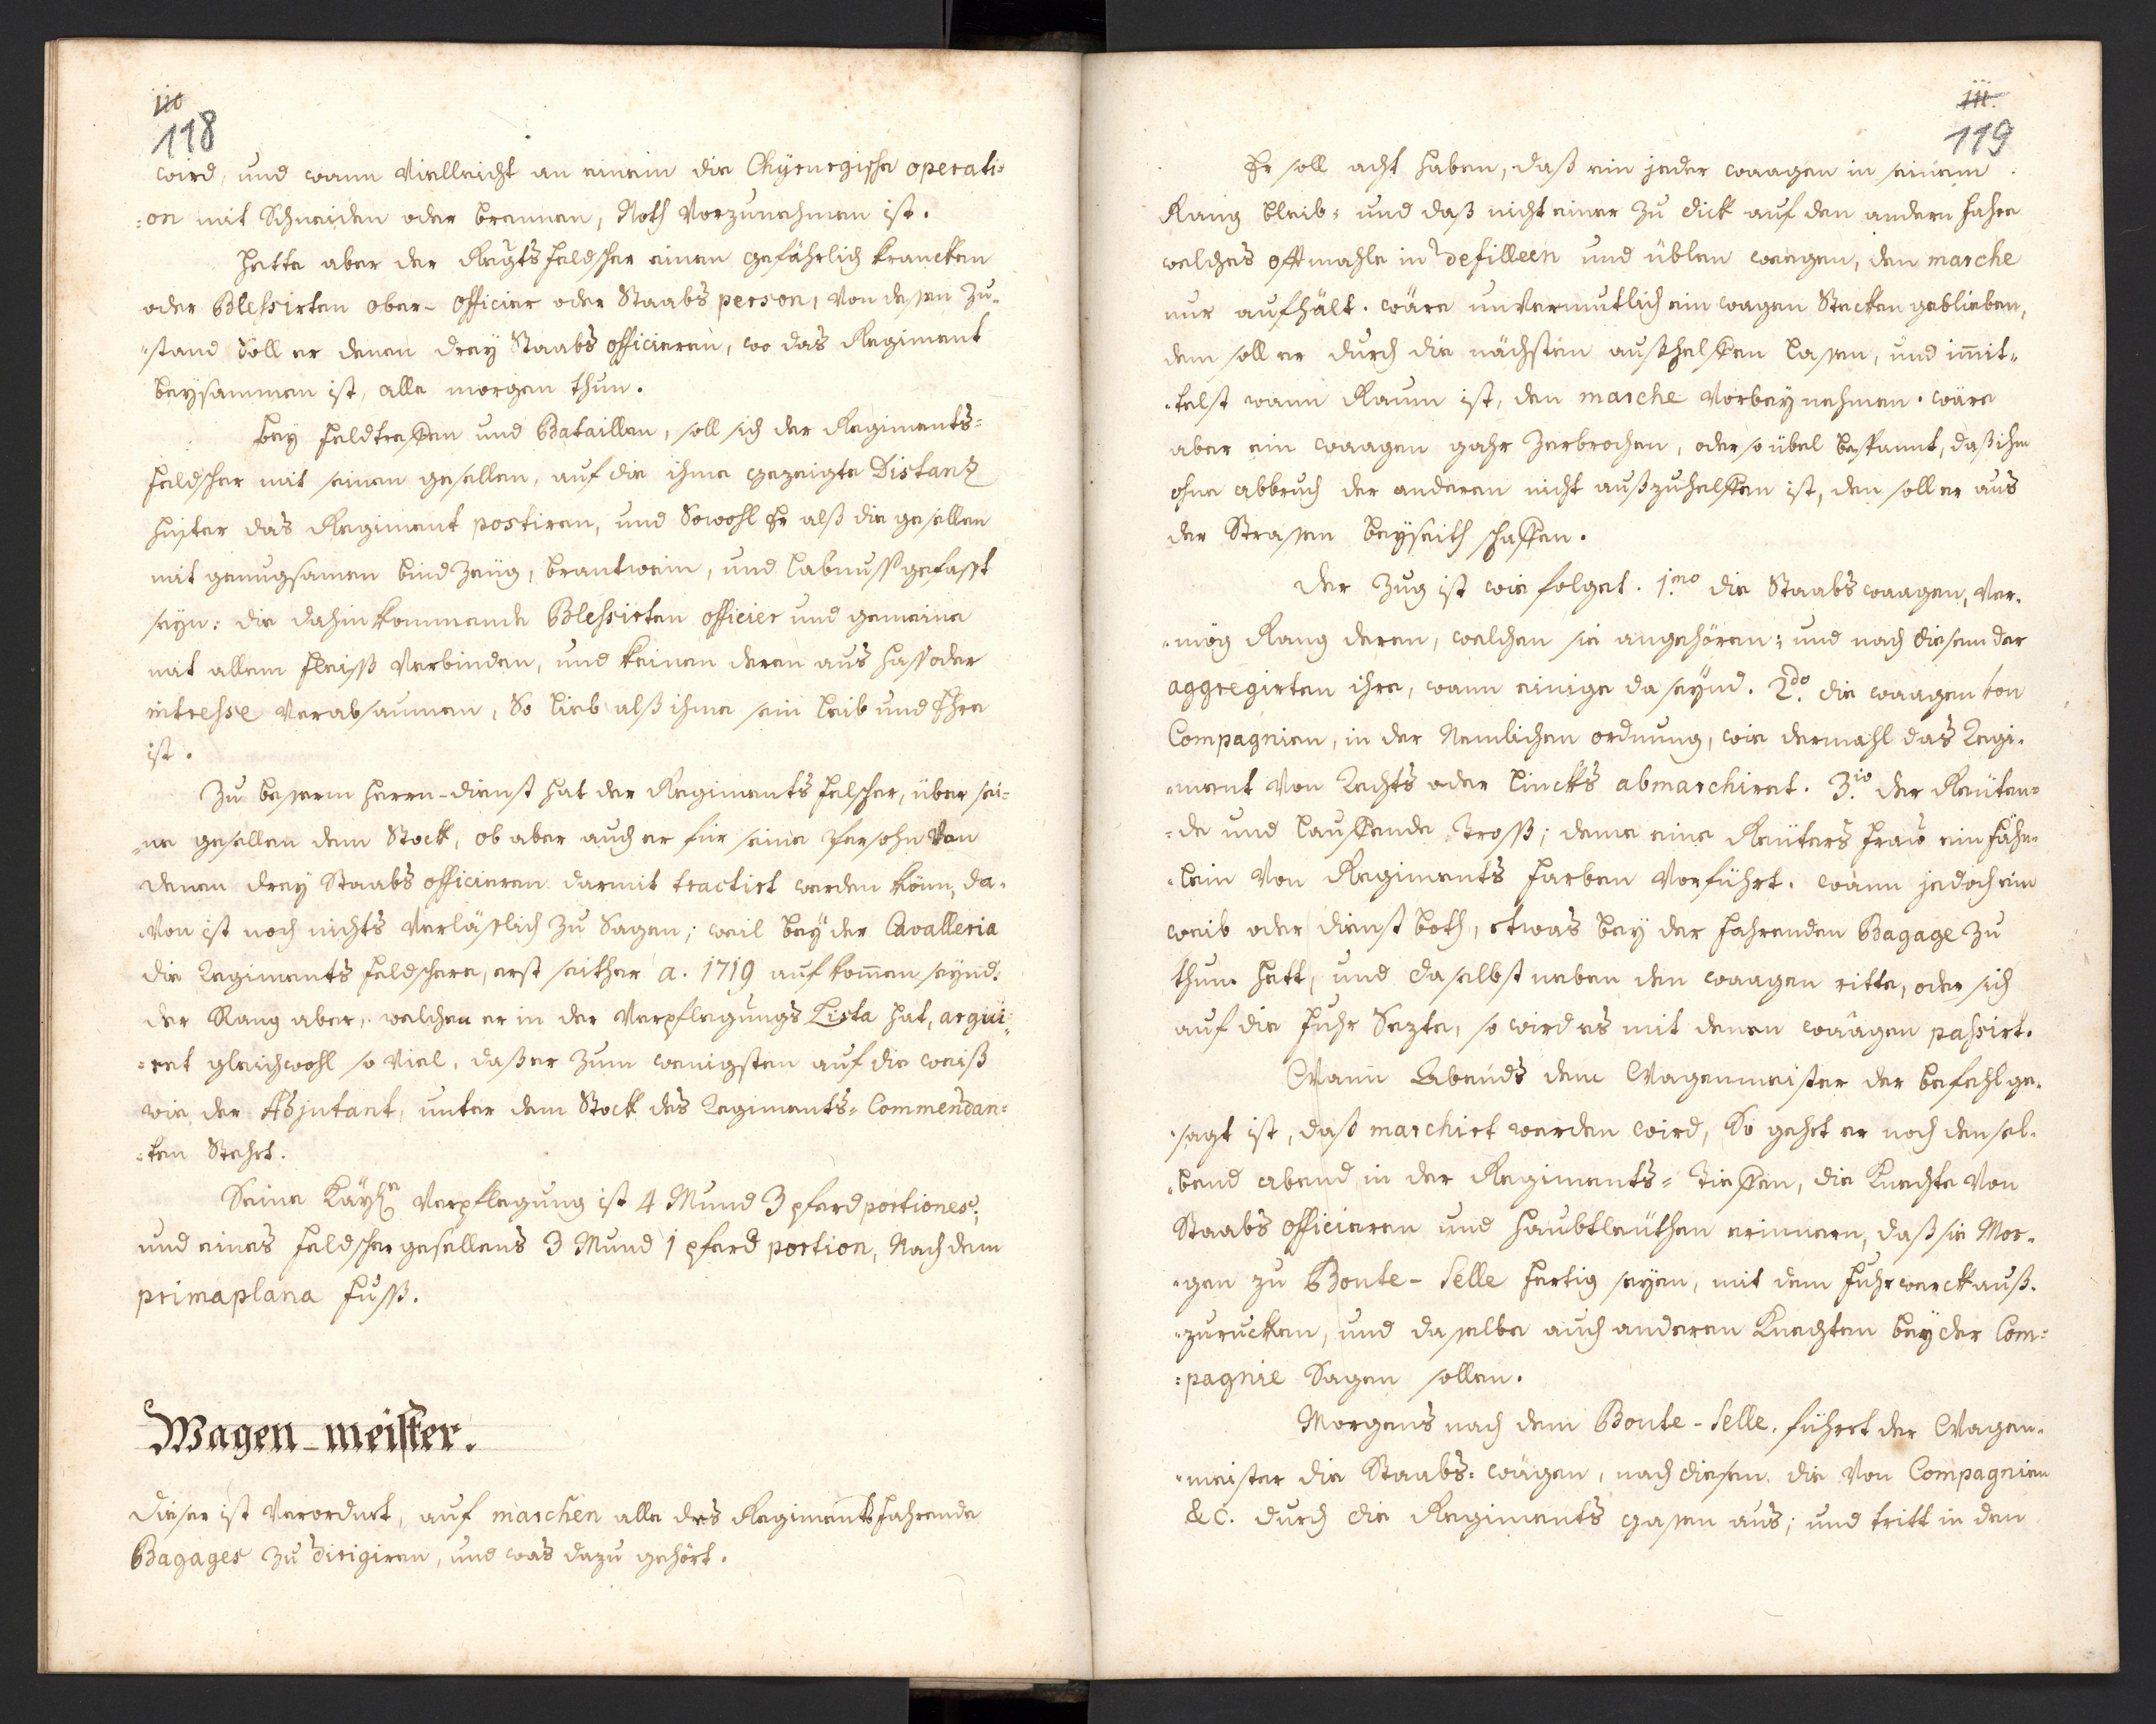 110
118
wird, und wann Vielleicht an einem die Chyrurgische operati=
=on mit Schneiden oder brennen, Noth Vorzunehmen ist.
Hette aber der Regts feldscher einen gefährlich krancken
oder Blessirten ober-officier oder Staabs person, von dessen Zu=
=stand Soll er denen dreÿ Staabs officieren, wo das Regiment
beÿsammen ist, alle morgen thun.
beÿ feldtreffen und Bataillen, soll sich der Regiments=
feldscher mit seinen gesellen, auf die ihme gezeigte Distantz
hinter das Regiment postiren, und Sowohl Er alß die gesellen
mit genugsamen bind zeüg, brantwein, und labnuss gefasst
seyn: die dahin kommende Blessirten officier und gemeine
mit allem fleiss verbinden, und keinen deren aus hass oder
intresse verabsaumen, So lieb alß ihme sein leib und Ehre
ist.
Zu besserm herrn-dienst hat der Regiments felscher, über sei=
=ne gesellen dem Stock, ob aber auch er für seine Persohn von
denen dreÿ Staabs officieren darmit tractirt werden könn, da=
von ist noch nichts verläßlich zu Sagen; weil beÿ der Cavalleria
die Regiments feldschere, erst seither a. 1719 aufkom̃en seÿnd.
der Rang aber, welchen er in der Verpflegungs Lista hat, argui=
=ret gleichwohl so viel, daß er zum wenigsten auf die weiß
wie der Adjutant, unter dem Stock des Regiments=Commendan=
=ten Stehet.
Seine Kaÿße Verpflegung ist 4 Mund 3 pferd portiones;
und eines feldscher gesellens 3 Mund 1 pferd portion, Nach dem
primaplana fuss.
Wagen-meister.
dieser ist verordnet, auf marchen alle des Regiments fahrende
Bagages zu dirigiren, und was dazu gehört.
111.
119
Er soll acht haben, daß ein jeder waagen in seinem
Rang bleib= und daß nicht einer zu dick auf den andern fahre
welches offtmahls in defilleen und üblen weegen, den marche
nur aufhält. wäre unvermutlich ein wagen Stecken geblieben,
dem soll er durch die nächsten außhelffen lassen, und im̃it=
=telst wann Raum ist, den marche Vorbeÿ nehmen. wäre
aber ein waagen gahr zerbrochen, oder so übel bespannt, daß ihm
ohne abbruch der anderen nicht außzuhelffen ist, den soll er aus
der Strassen beÿseith schaffen.
der Zug ist wie folget. 1.mo die Staabs waagen, ver=
=mög Rang deren, welchen sie angehören; und nach diesem der
aggregirten ihre, wann einige da seÿnd. 2.do die waagen von
Compagnien, in der Nemlichen ordnung, wie dermahl das Regi=
=ment von Rechts oder lincks abmarchiret. 3.io der Reüten=
=de und lauffende Tross; deme eine Reüters frau ein fähn=
=lein von Regiments farben Vorführt. wann jedoch ein
weib oder dienst both, etwas beÿ der fahrenden Bagage zu
thun hett, und daselbst neben den waagen ritte, oder sich
auf die fuhr Sezte, so wird es mit denen wäägen passirt.
Wann Abends dem Wagenmeister der befehl ge=
=sagt ist, daß marchirt werden wird, So gehet er noch den sel=
=bend abend in der Regiments=Tieffen, die Knechte von
Staabs officieren und haubtleüthen erinnern, daß sie Mor=
=gen zu Boute-Selle fertig seÿen, mit dem fuhrwerck auß=
=zurucken, und dasselbe auch anderen Knechten beÿ der Com=
=pagnie Sagen sollen.
Morgens nach dem Boute-Selle, führet der Wagen=
=meister die Staabs=wägen, nach diesen die von Compagnien
&c. durch die Regiments gassen aus; und tritt in den